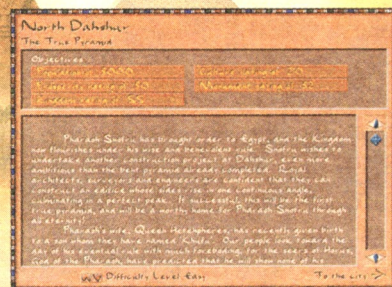 North Dahshur
The True Pyramid
Objectives
Pharaoh Snofru has brought order to Egypt, and the Kingdom
now flourishes under his wise and benevolent rule. Snofru wishes to
undertake another construction project at Dahshur, even more
ambitious than the bent pyramid already completed. Royal
architects, surveyors and engineers are confident that they can
construct an edifice whose sides rise in one continuous angle,
culminating in a perfect peak. If successful, this will be the first
true pyramid, and will be a worthy home for Pharaoh Snofru through
all eternity!
Pharaoh's wife, Queen Hetepheres, has recently given birth
to a son whom they have named Khufu. Our people look toward the
day of his eventual rule with much foreboding, for the seers of Horus,
God of the Pharaoh, have predicted that he will show none of his
Difficulty Level Easy
To the city